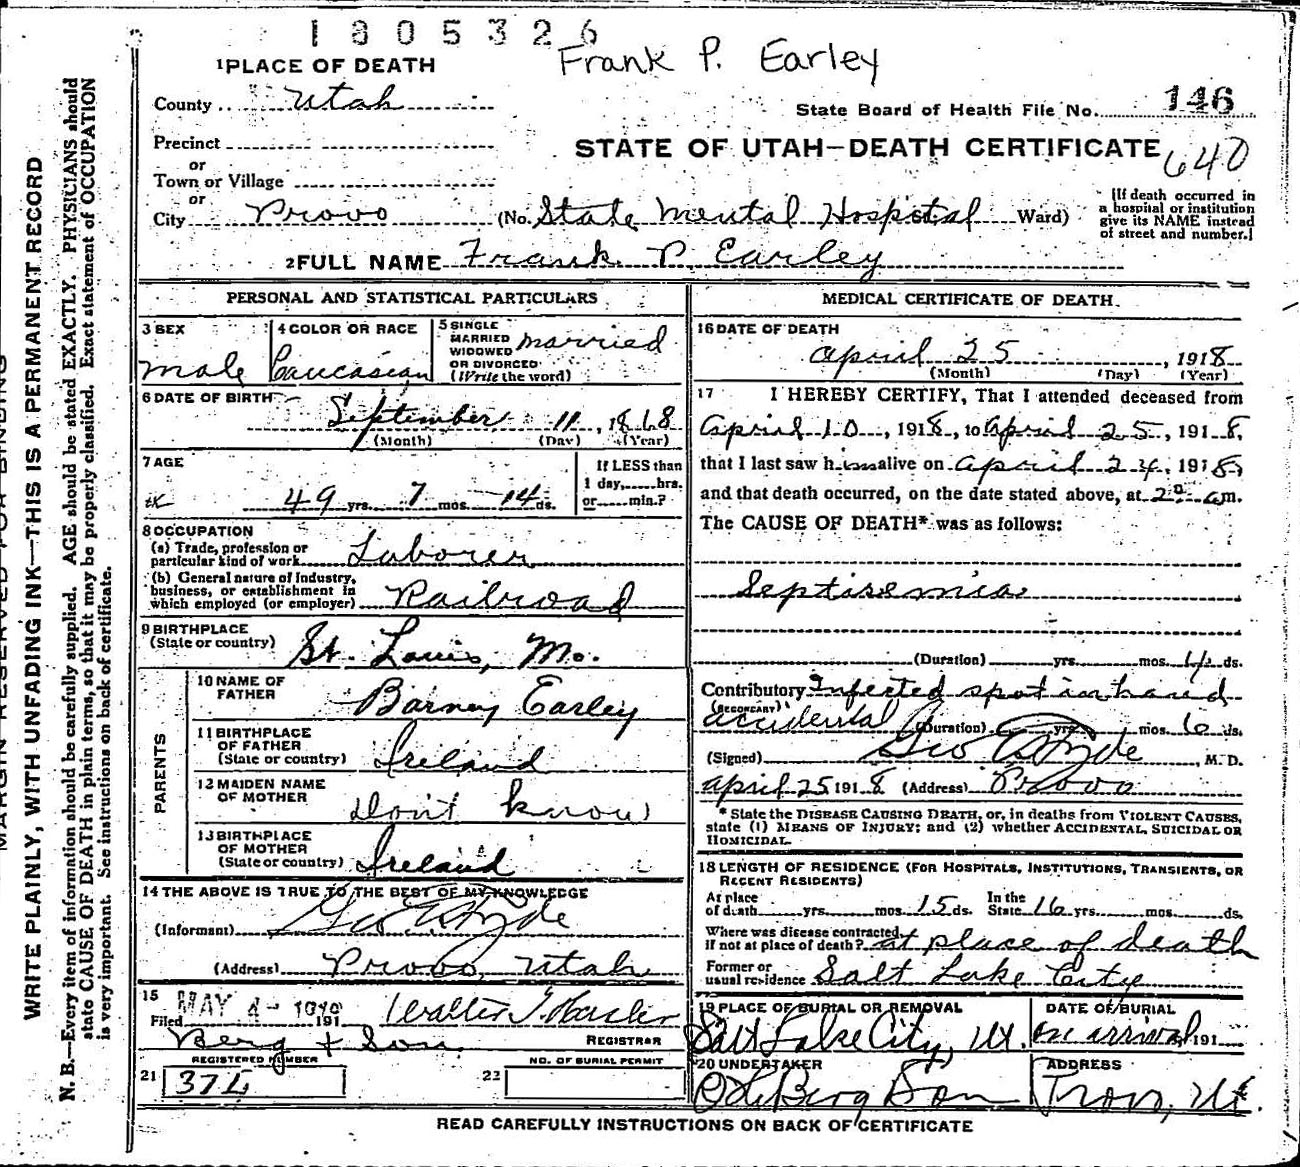 1805326
Frank P. Earley
1 PLACE OF DEATH
County Utah
State Board of Health File No. 146
Precinct
or
STATE OF UTAH—DEATH CERTIFICATE 640
Town or Village
or
City Provo (No. State Mental Hospital Ward)
[If death occurred in
a hospital or institution
give its NAME instead
of street and number.]
2 FULL NAME Frank P. Earley
PERSONAL AND STATISTICAL PARTICULARS
3 SEX
male
4 COLOR OR RACE
Caucasian
5 SINGLE
MARRIED
WIDOWED
OR DIVORCED
(Write the word)
married
6 DATE OF BIRTH
September 11, 1868
(Month) (Day) (Year)
7 AGE
49 yrs. 7 mos. 14 ds.
If LESS than
1 day, hrs.
or min.?
8 OCCUPATION
(a) Trade, profession or
particular kind of work Laborer
(b) General nature of Industry,
business, or establishment in
which employed (or employer) Railroad
9 BIRTHPLACE
(State or country) St. Louis, Mo.
PARENTS
10 NAME OF
FATHER Barney Earley
11 BIRTHPLACE
OF FATHER
(State or country) Ireland
12 MAIDEN NAME
OF MOTHER Don't know
13 BIRTHPLACE
OF MOTHER
(State or country) Ireland
14 THE ABOVE IS TRUE TO THE BEST OF MY KNOWLEDGE
(Informant) Geo E Hyde
(Address) Provo, Utah
15
Filed MAY 4- 191
REGISTRAR
Berg & Son
REGISTERED NUMBER
21 374
NO. OF BURIAL PERMIT
22
MEDICAL CERTIFICATE OF DEATH
16 DATE OF DEATH
April 25, 1918
(Month) (Day) (Year)
17 I HEREBY CERTIFY, That I attended deceased from
April 10, 1918, to April 25, 1918,
that I last saw him alive on April 24, 1918,
and that death occurred, on the date stated above, at 2 am.
The CAUSE OF DEATH* was as follows:
Septisemia
(Duration) yrs. mos. ds.
Contributory Infected spot in hand
(SECONDARY)
accidental (Duration) yrs. mos. 6 ds.
(Signed) Geo E Hyde, M. D.
April 25 1918 (Address) Provo
* State the DISEASE CAUSING DEATH, or, in deaths from VIOLENT CAUSES,
state (1) MEANS OF INJURY; and (2) whether ACCIDENTAL, SUICIDAL OR
HOMICIDAL.
18 LENGTH OF RESIDENCE (FOR HOSPITALS, INSTITUTIONS, TRANSIENTS, OR
RECENT RESIDENTS)
At place
of death yrs. mos. 15 ds. In the
State 16 yrs. mos. ds.
Where was disease contracted,
if not at place of death? at place of death
Former or
usual residence Salt Lake City
19 PLACE OF BURIAL OR REMOVAL
Salt Lake City, Ut.
DATE OF BURIAL
on arrival, 191
20 UNDERTAKER
Berg Son
ADDRESS
Provo, Ut.
READ CAREFULLY INSTRUCTIONS ON BACK OF CERTIFICATE
WRITE PLAINLY, WITH UNFADING INK—THIS IS A PERMANENT RECORD
N. B.—Every item of information should be carefully supplied. AGE should be stated EXACTLY. PHYSICIANS should
state CAUSE OF DEATH in plain terms, so that it may be properly classified. Exact statement of OCCUPATION
is very important. See instructions on back of certificate.